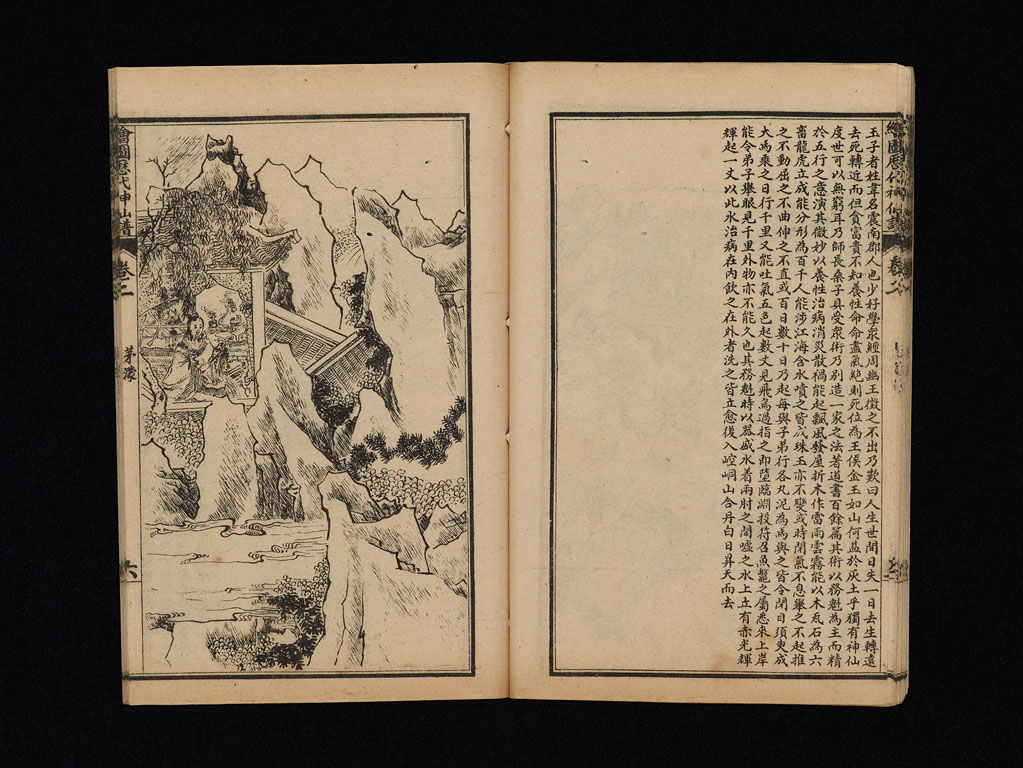 繪圖歷代神仙譜 卷二
玉子者姓韋名震南郡人也少好學衆經周幽王徵之不出乃歎曰人生世間日失一日去生轉遠
去死轉近而但貪富貴不知養性命命盡氣絕則死位為王侯金玉如山何益於灰土乎獨有神仙
度世可以無窮耳乃師長桑子具受衆術乃別造一家之法著道書百餘篇其術以務魁為主而精
於五行之意演其微妙以養性治病消災散禍能起飄風發屋折木作雷雨雲霧能以木瓦石為六
畜龍虎立成能分形為百千人能涉江海含水噴之皆成珠玉亦不變或時閉氣不息舉之不起推
之不動屈之不曲伸之不直或百日數十日乃起每與子弟行各丸泥為馬與之皆令閉目須臾成
大馬乘之日行千里又能吐氣五色起數丈見飛鳥過指之即墮臨淵投符召魚鼈之屬悉來上岸
能令弟子舉眼見千里外物亦不能久也其務魁時以器盛水着兩肘之間噓之水上立有赤光輝
輝起一丈以此水治病在內飲之在外者洗之皆立愈後入崆峒山合丹白日昇天而去
繪圖歷代神仙譜 卷二 茅濛 六